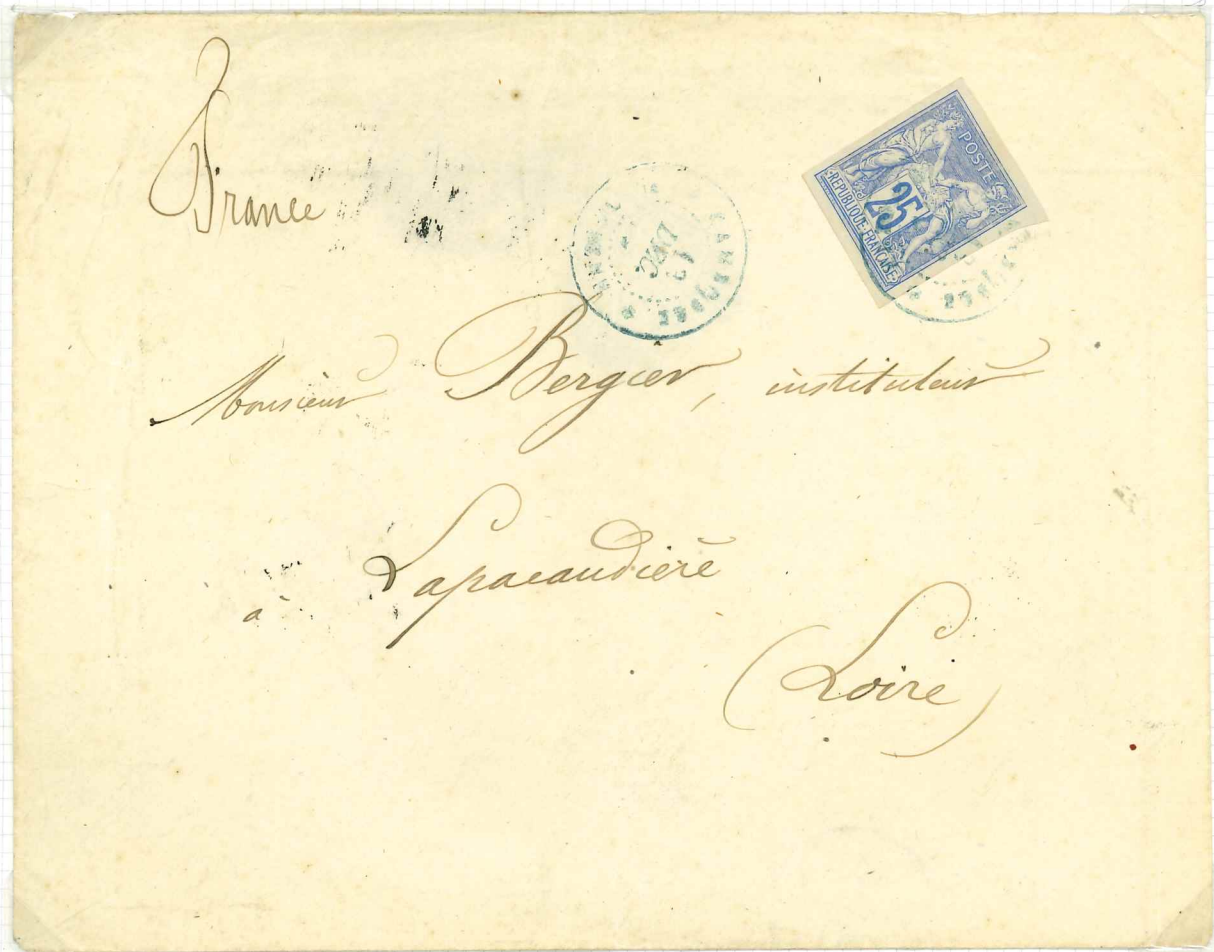 France
POSTE
25
REPUBLIQUE FRANÇAISE
Monsieur Bergier, instituteur
à Lapacaudière
(Loire)